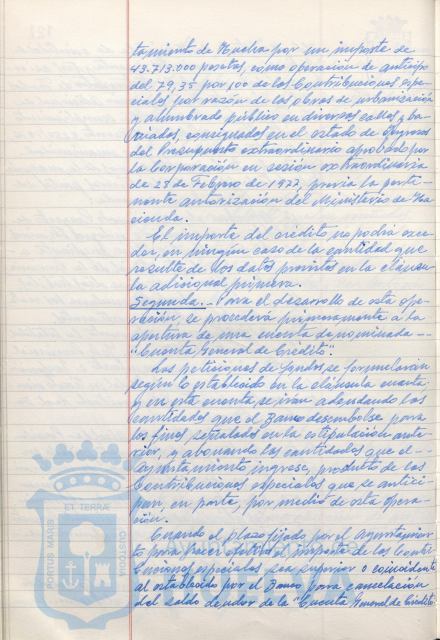 tamiento de Huelva por un importe de
43.713.000 pesetas, como operación de anticipo
del 79,35 por 100 de las Contribuciones espe-
ciales por razón de las obras de urbanización
y alumbrado público en diversas calles y ba-
rriadas, consignadas en el estado de Ingresos
del Presupuesto extraordinario aprobado por
la Corporación en sesión extraordinaria
de 23 de Febrero de 1977, previa la perti-
nente autorización del Ministerio de Ha-
cienda.
El importe del crédito no podrá exce-
der, en ningún caso de la cantidad que
resulte de los datos previstos en la cláusu-
la adicional primera.
Segunda.- Para el desarrollo de esta ope-
ración, se procederá primeramente a la
apertura de una cuenta denominada --
"Cuenta General de Crédito".
Las peticiones de fondos se formularán
según lo establecido en la cláusula cuarta
y en esta cuenta se irán adeudando las
cantidades que el Banco desembolse para
los fines señalados en la estipulación ante-
rior, y abonando las cantidades que el --
Ayuntamiento ingrese, producto de las
Contribuciones especiales que se antici-
pan, en parte, por medio de esta opera-
ción.
Cuando el plazo fijado por el Ayuntamien-
to para hacer efectivo el importe de las Contri-
buciones especiales sea superior o coincidente
al establecido por el Banco para cancelación
del saldo deudor de la "Cuenta General de Crédito
PORTUS MARIS
ET TERRÆ
CUSTODIA